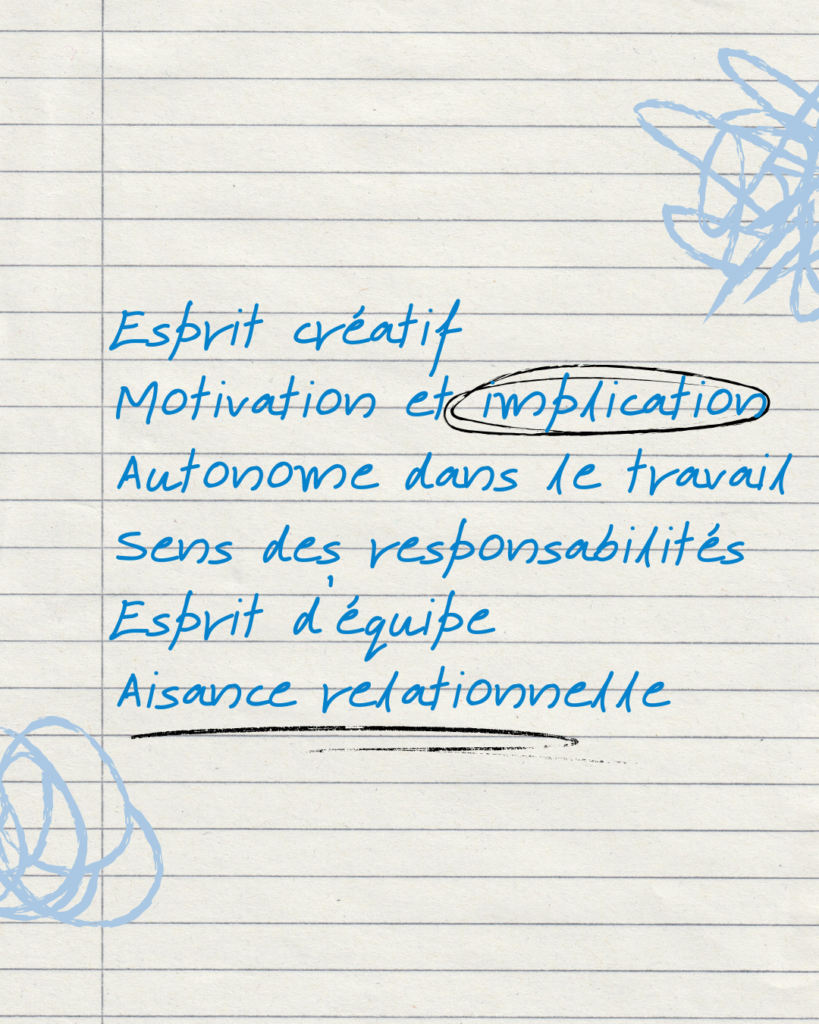 Esprit créatif
Motivation et implication
Autonome dans le travail
Sens des responsabilités
Esprit d'équipe
Aisance relationnelle